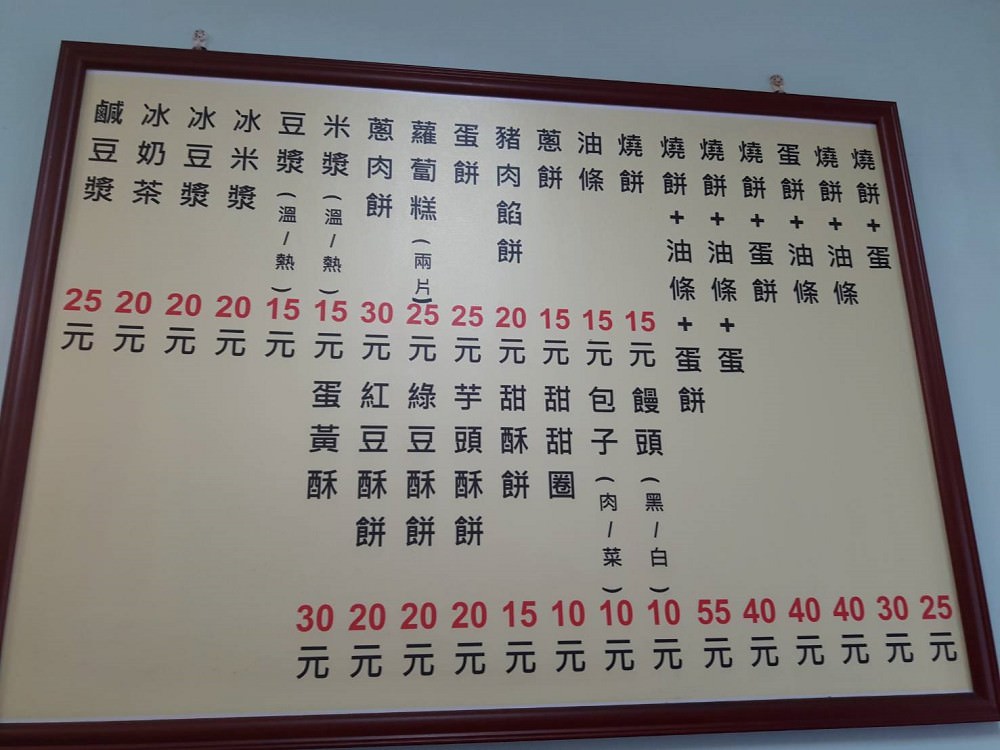 燒餅+蛋 25元
燒餅+油條 30元
蛋餅+油條 40元
燒餅+蛋餅 40元
燒餅+油條+蛋 40元
燒餅+油條+蛋餅 55元
燒餅 15元
油條 15元
蔥餅 15元
豬肉餡餅 20元
蛋餅 25元
蘿蔔糕(兩片) 25元
蔥肉餅 30元
米漿(溫/熱) 15元
豆漿(溫/熱) 15元
冰米漿 20元
冰豆漿 20元
冰奶茶 20元
鹹豆漿 25元
饅頭(黑/白) 10元
包子(肉/菜) 10元
甜甜圈 10元
甜酥餅 15元
芋頭酥餅 20元
綠豆酥餅 20元
紅豆酥餅 20元
蛋黃酥 30元